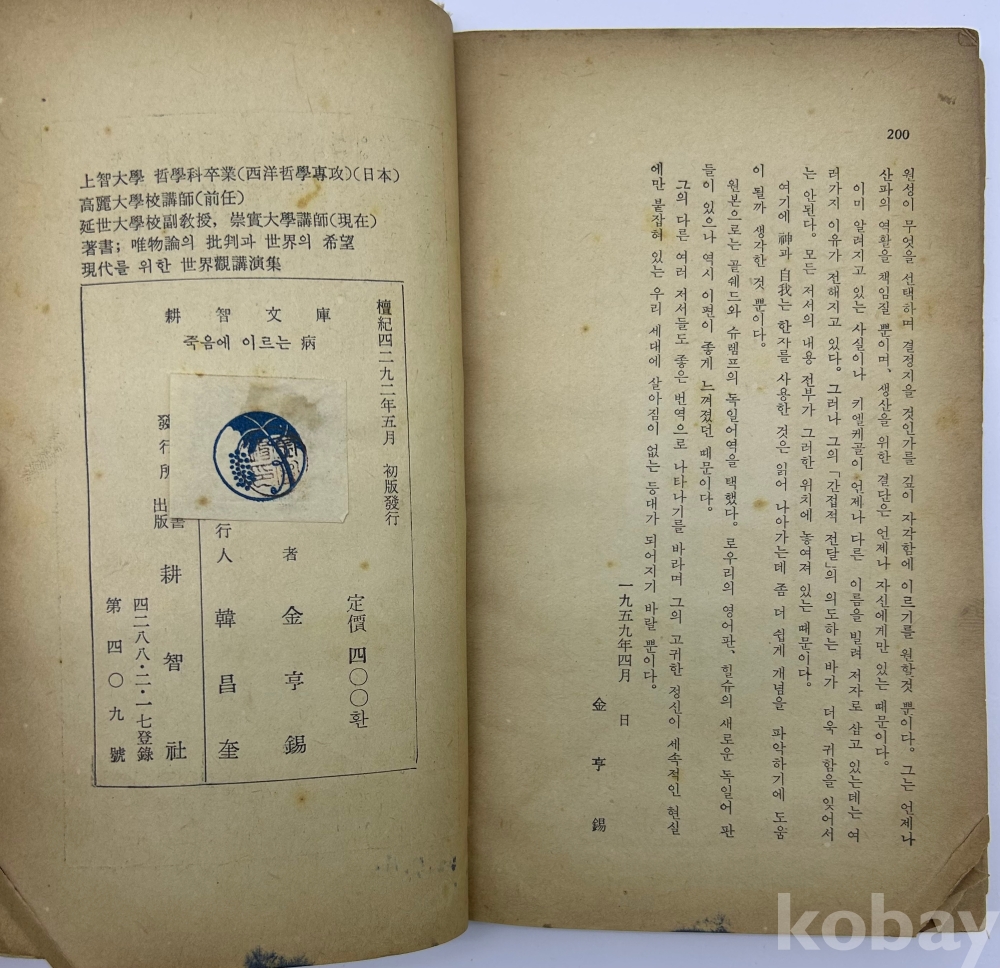 200
원성이 무엇을 선택하며 결정지을 것인가를 깊이 자각함에 이르기를 원할것 뿐이다. 그는 언제나
산파의 역활을 책임질 뿐이며, 생산을 위한 결단은 언제나 자신에게만 있는 때문이다.
이미 알려지고 있는 사실이나 키엘케골이 언제나 다른 이름을 빌려 저자로 삼고 있는데는 여
러가지 이유가 전해지고 있다. 그러나 그의 「간접적 전달」의 의도하는 바가 더욱 귀함을 잊어서
는 안된다. 모든 저서의 내용 전부가 그러한 위치에 놓여져 있는 때문이다.
여기에 神과 自我는 한자를 사용한 것은 읽어 나아가는데 좀 더 쉽게 개념을 파악하기에 도움
이 될까 생각한 것 뿐이다.
원본으로는 골쉐드와 슈렘프의 독일어역을 택했다. 로우리의 영어판, 힐슈의 새로운 독일어 판
들이 있으나 역시 이편이 좋게 느껴졌던 때문이다.
그의 다른 여러 저서들도 좋은 번역으로 나타나기를 바라며 그의 고귀한 정신이 세속적인 현실
에만 붙잡혀 있는 우리 세대에 살아짐이 없는 등대가 되어지기 바랄 뿐이다.
一九五九年四月 日
金亨錫
上智大學 哲學科卒業(西洋哲學專攻)(日本)
高麗大學校講師(前任)
延世大學校副敎授, 崇實大學講師(現在)
著書; 唯物論의 批判과 世界의 希望
現代를 위한 世界觀講演集
耕智文庫
죽음에 이르는 病
檀紀四二九二年五月 初版發行
定價 四〇〇환
者 金亨錫
行人 韓昌奎
發行所 出版 書 耕智社
四二八八·二·一七登錄
第四〇九號
kobay